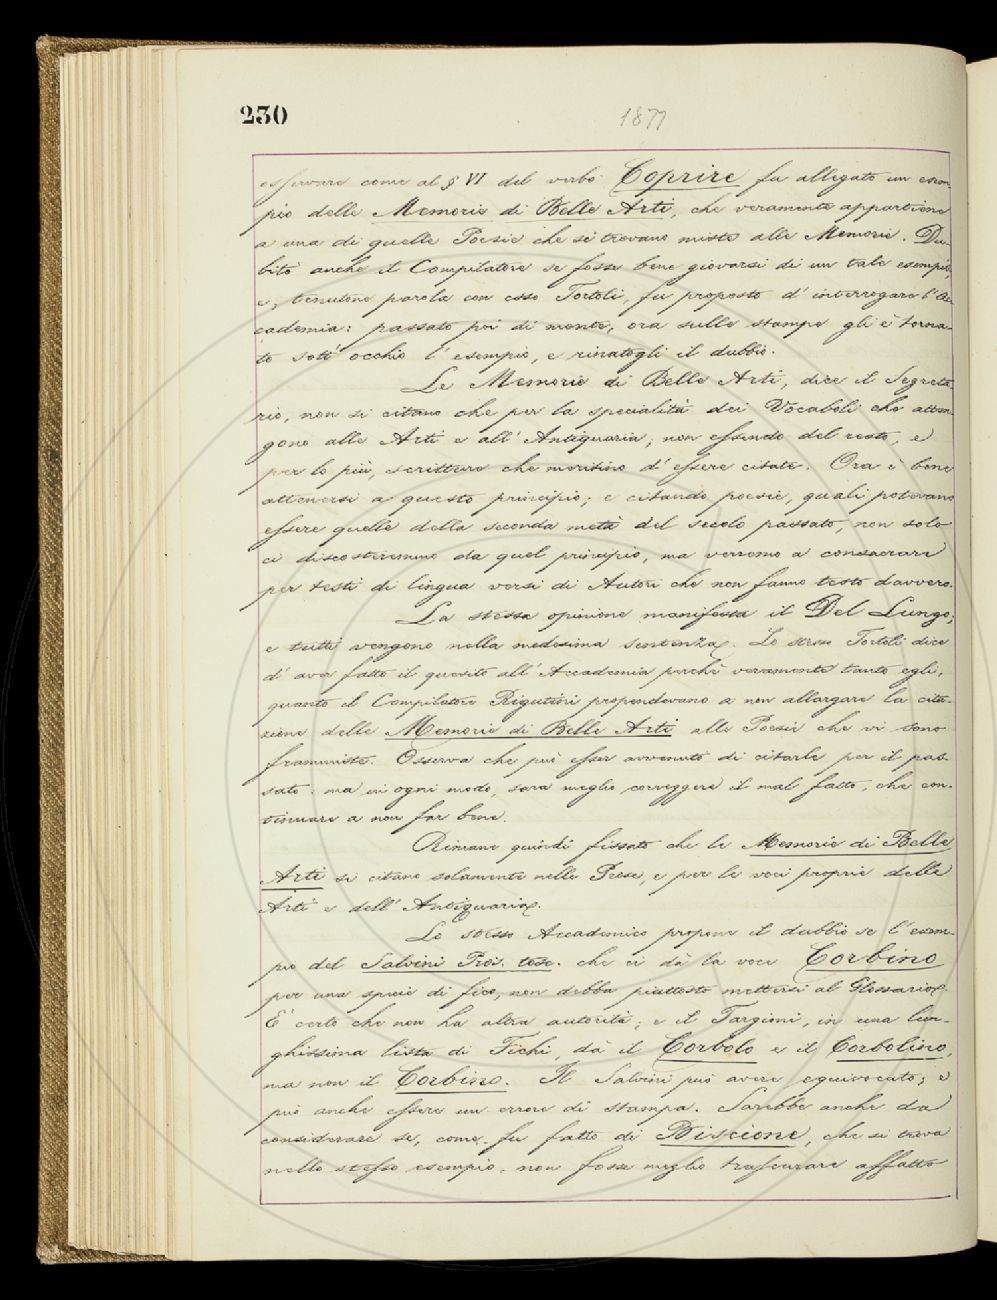 230
1877
osservare come al § VI del verbo Coprire fu allegato un esem-
pio delle Memorie di Belle Arti, che veramente appartiene
a una di quelle Poesie che si trovano miste alle Memorie. Du-
bitò anche il Compilatore se fosse bene giovarsi di un tale esempio,
e, tenutone parola con esso Tortoli, fu proposto d'interrogare l'Ac-
cademia: passato poi di mente, ora sulle stampe gli è torna-
to sott'occhio l'esempio, e rinatogli il dubbio.
Le Memorie di Belle Arti, dice il Segreta-
rio, non si citano che per la specialità dei Vocaboli che atten-
gono alle Arti e all'Antiquaria; non essendo del resto, e
per lo più, scritture che meritino d'essere citate. Ora è bene
attenersi a questo principio; e citando poesie, quali potevano
essere quelle della seconda metà del secolo passato, non solo
ci discosteremmo da quel principio, ma verremo a consacrare
per testi di lingua versi di Autori che non fanno testo davvero.
La stessa opinione manifesta il Del Lungo;
e tutti vengono nella medesima sentenza. Lo stesso Tortoli dice
d'aver fatto il quesito all'Accademia perchè veramente tanto egli,
quanto il Compilatore Rigutini propendevano a non allargare la cita-
zione delle Memorie di Belle Arti alle Poesie che vi sono
frammiste. Osserva che può esser avvenuto di citarle per il pas-
sato: ma in ogni modo, sarà meglio correggere il mal fatto, che con-
tinuare a non far bene.
Rimane quindi fissato che le Memorie di Belle
Arti si citano solamente nelle Prose, e per le voci proprie delle
Arti e dell'Antiquaria.
Lo stesso Accademico propone il dubbio se l'esem-
pio del Salvini Pros. tosc. che ci dà la voce Corbino
per una specie di fico, non debba piuttosto mettersi al Glossario.
È certo che non ha altra autorità; e il Targioni, in una lun-
ghissima lista di Fichi, dà il Corbolo e il Corbolino,
ma non il Corbino. Il Salvini può avere equivocato; e
può anche essere un errore di stampa. Sarebbe anche da
considerare se, come fu fatto di Biscione, che si trova
nello stesso esempio, non fosse meglio trascurare affatto